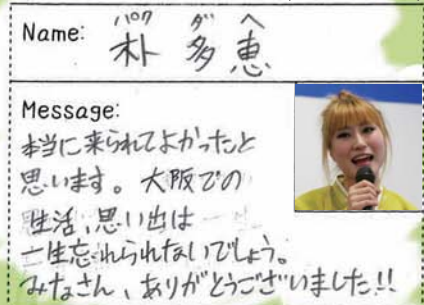 パク ダ ヘ
Name: 朴 多 恵
Message:
本当に来られてよかったと
思います。大阪での
生活、思い出は
一生忘れられないでしょう。
みなさん、ありがとうございました!!